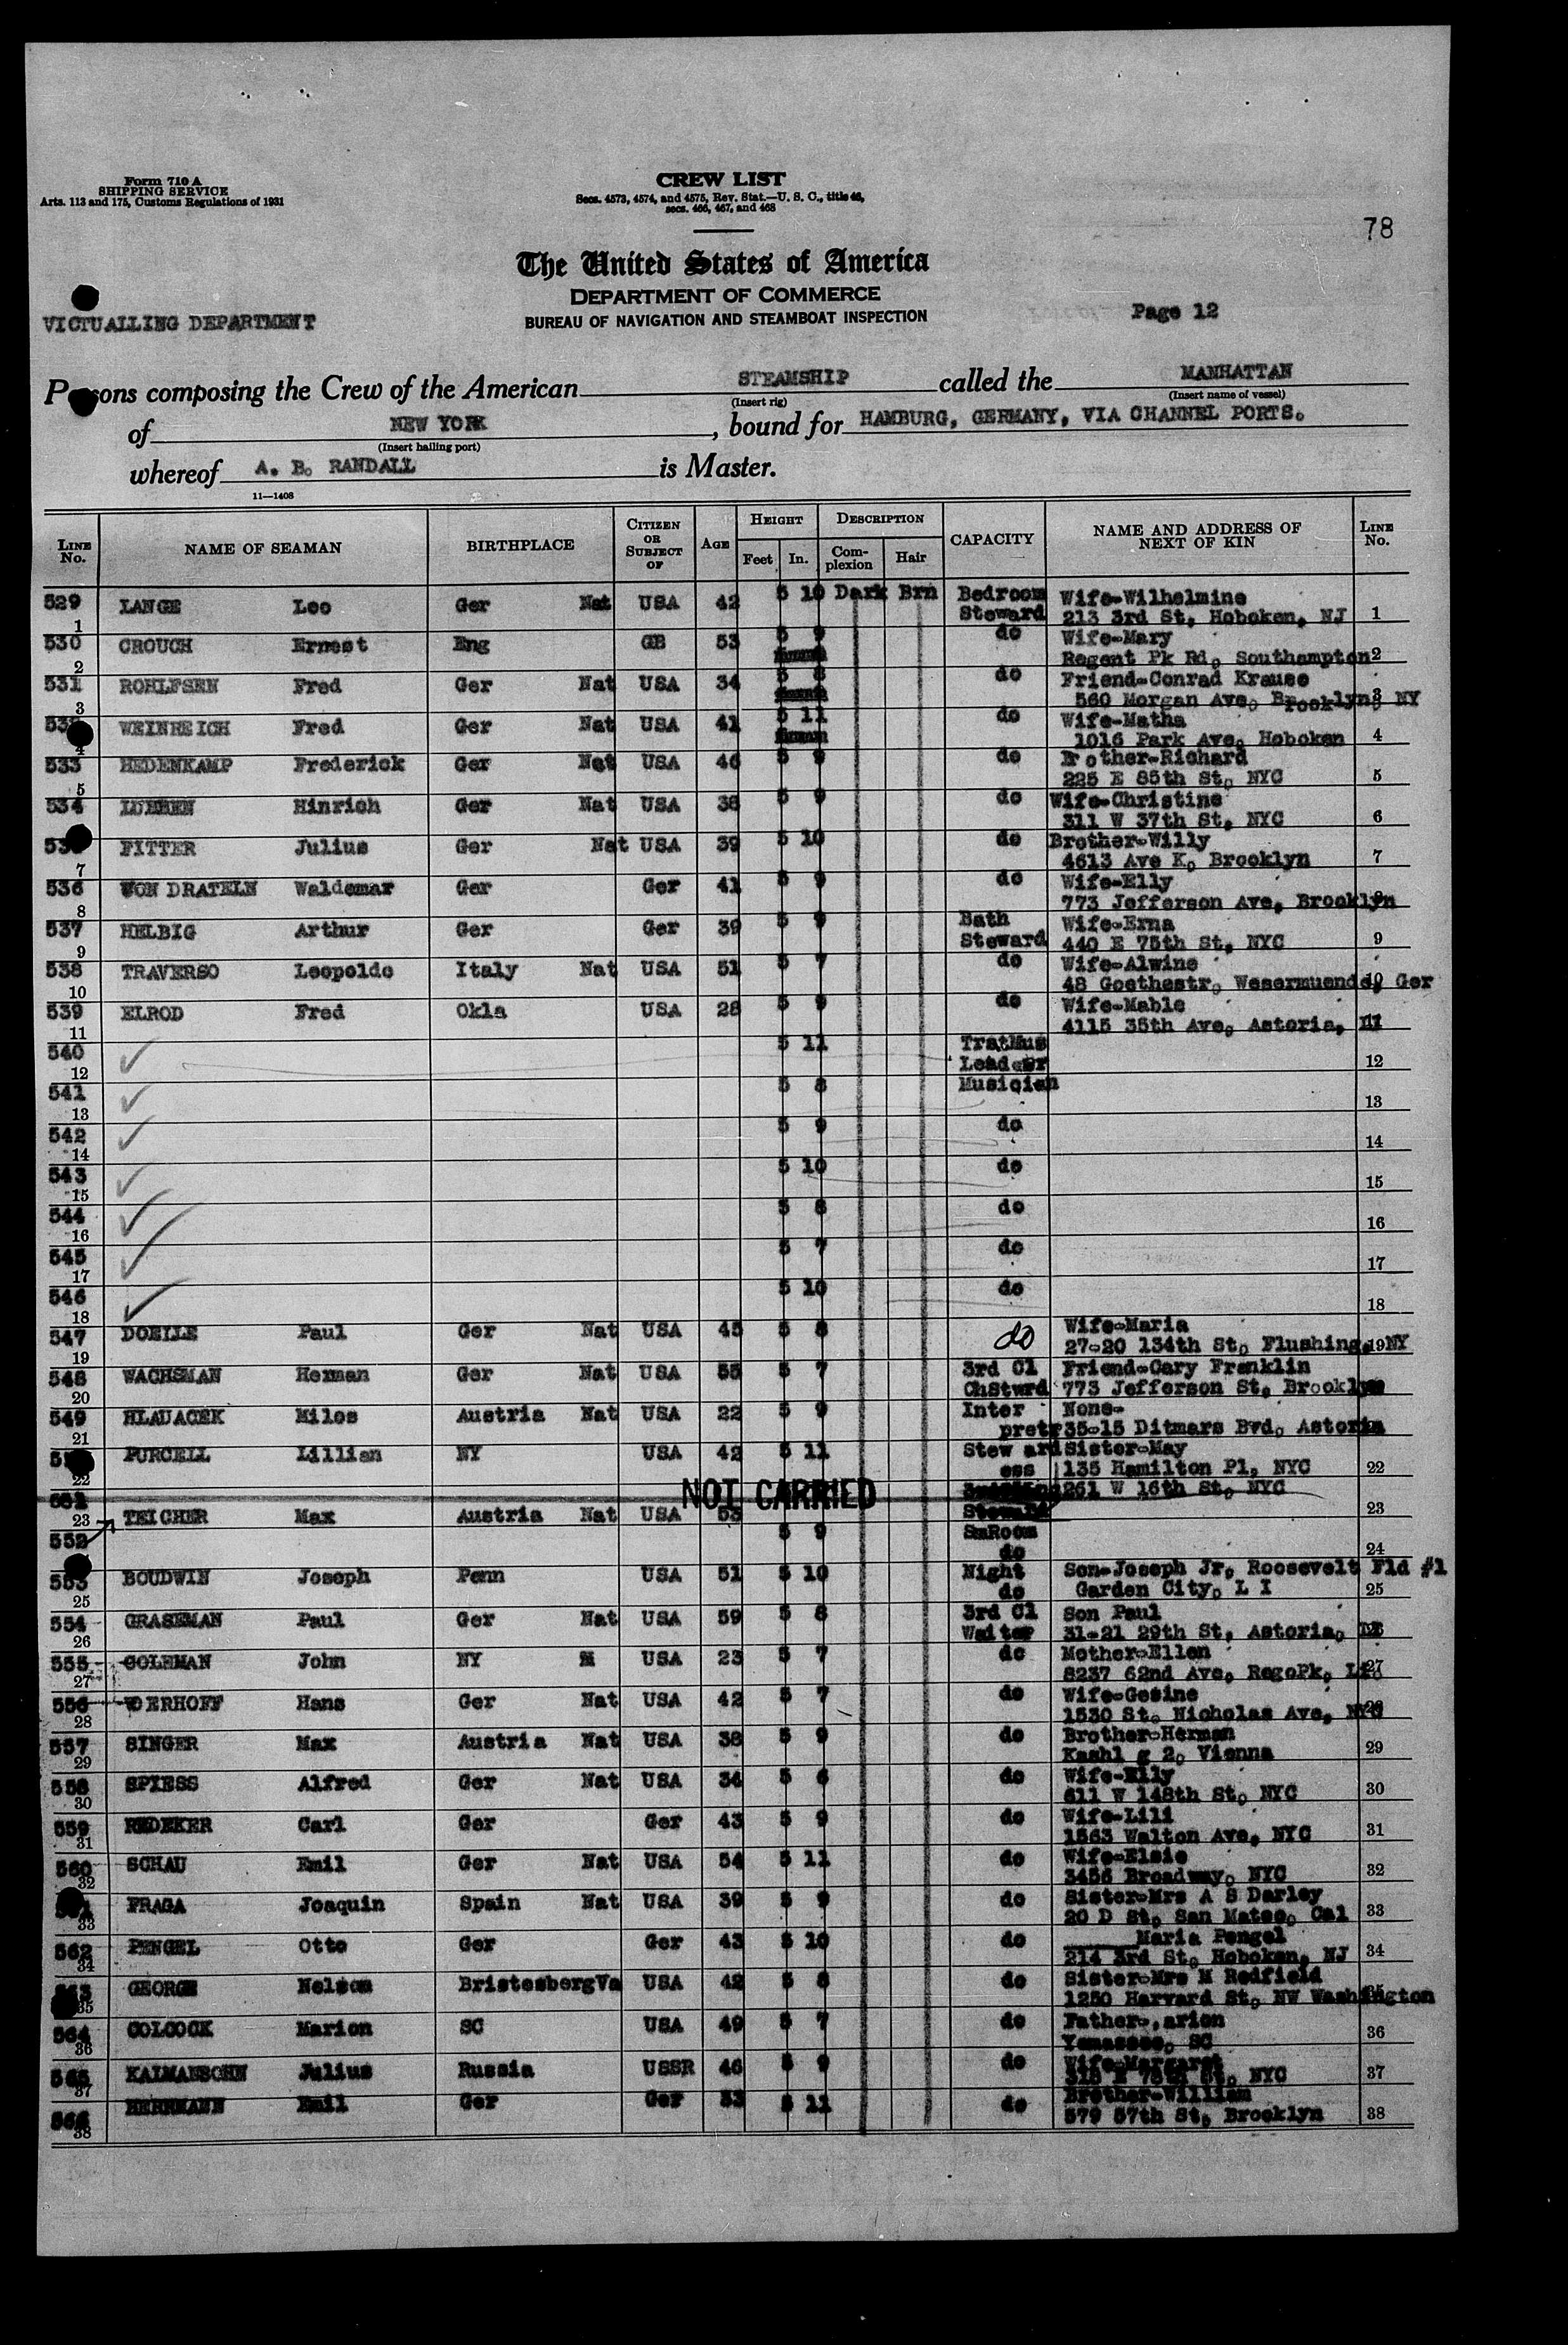 Form 710 A
SHIPPING SERVICE
Arts. 113 and 175, Customs Regulations of 1931
CREW LIST
Secs. 4573, 4574, and 4575, Rev. Stat.—U. S. C., title 46,
secs. 466, 467, and 468
78
The United States of America
DEPARTMENT OF COMMERCE
BUREAU OF NAVIGATION AND STEAMBOAT INSPECTION
VICTUALLING DEPARTMENT
Page 12
Persons composing the Crew of the American STEAMSHIP called the MANHATTAN
(Insert rig) (Insert name of vessel)
of NEW YORK, bound for HAMBURG, GERMANY, VIA CHANNEL PORTS.
(Insert hailing port)
whereof A. B. RANDALL is Master.
11—1408
LINE No. NAME OF SEAMAN BIRTHPLACE CITIZEN OR SUBJECT OF AGE HEIGHT DESCRIPTION CAPACITY NAME AND ADDRESS OF NEXT OF KIN LINE No.
Feet In. Complexion Hair
529 LANGE Leo Ger Nat USA 42 5 10 Dark Brn Bedroom Wife-Wilhelmine
1 Steward 213 3rd St, Hoboken, NJ 1
530 CROUCH Ernest Eng GB 53 5 9 do Wife-Mary
2 Regent Pk Rd, Southampton 2
531 ROHLFSEN Fred Ger Nat USA 34 5 8 do Friend-Conrad Krause
3 560 Morgan Ave, Brooklyn, NY 3
WEINREICH Fred Ger Nat USA 41 5 11 do Wife-Matha
4 1016 Park Ave, Hoboken 4
533 HEDENKAMP Frederick Ger Nat USA 46 5 9 do Brother-Richard
5 225 E 85th St, NYC 5
534 LUEBEN Hinrich Ger Nat USA 38 5 9 do Wife-Christine
311 W 37th St, NYC 6
FITTER Julius Ger Nat USA 39 5 10 do Brother-Willy
7 4613 Ave K, Brooklyn 7
536 VON DRATELN Waldemar Ger Ger 41 5 9 do Wife-Elly
8 773 Jefferson Ave, Brooklyn 8
537 HELBIG Arthur Ger Ger 39 5 9 Bath Wife-Erna
9 Steward 440 E 75th St, NYC 9
538 TRAVERSO Leopoldo Italy Nat USA 51 5 7 do Wife-Alwine
10 48 Goethestr, Wesermuende, Ger 10
539 ELROD Fred Okla USA 28 5 9 do Wife-Mable
11 4115 35th Ave, Astoria, LI
540 5 11
12 Leader 12
541 5 8 Musician
13 13
542 5 9 do
14 14
543 5 10 do
15 15
544 5 8 do
16 16
545 5 7 do
17 17
546 5 10 do
18 18
547 DOELLE Paul Ger Nat USA 45 5 8 do Wife-Maria
19 27-20 134th St, Flushing, NY 19
548 WACHSMAN Herman Ger Nat USA 55 5 7 3rd Cl Friend-Cary Franklin
20 ChStwrd 773 Jefferson St, Brooklyn
549 HLAUACEK Milos Austria Nat USA 22 5 9 Inter None-
21 pretr 35-15 Ditmars Bvd, Astoria
PURCELL Lillian NY USA 42 5 11 Stew ard Sister-May
22 ess 135 Hamilton Pl, NYC 22
551 NOT CARRIED 261 W 16th St, NYC
23 TEICHER Max Austria Nat USA 53 Steward 23
552 5 9 SmRoom
do 24
553 BOUDWIN Joseph Penn USA 51 5 10 Night Son-Joseph Jr, Roosevelt Fld #1
25 do Garden City, L I 25
554 GRASEMAN Paul Ger Nat USA 59 5 8 3rd Cl Son Paul
26 Waiter 31-21 29th St, Astoria, LI
555 COLEMAN John NY M USA 23 5 7 do Mother-Ellen
27 8237 62nd Ave, RegoPk, LI 27
556 WOERHOFF Hans Ger Nat USA 42 5 7 do Wife-Gesine
28 1530 St. Nicholas Ave, NYC 28
557 SINGER Max Austria Nat USA 38 5 9 do Brother-Herman
29 Kashl g 2, Vienna 29
558 SPIESS Alfred Ger Nat USA 34 5 6 do Wife-Elly
30 611 W 148th St, NYC 30
559 REDEKER Carl Ger Ger 43 5 9 do Wife-Lili
31 1563 Walton Ave, NYC 31
560 SCHAU Emil Ger Nat USA 54 5 11 do Wife-Elsie
32 3456 Broadway, NYC 32
FRAGA Joaquin Spain Nat USA 39 5 9 do Sister-Mrs A S Darley
33 20 D St, San Mateo, Cal 33
562 PENGEL Otto Ger Ger 43 5 10 do Maria Pengel
34 214 3rd St, Hoboken, NJ 34
GEORGE Nelson BristesbergVa USA 42 5 8 do Sister-Mrs M Redfield
35 1250 Harvard St, NW Washington 35
564 COLCOCK Marion SC USA 49 5 7 do Father-,arion
36 Yemassee, SC 36
565 KAIMANSOHN Julius Russia USSR 46 5 9 do Wife-Margaret
37 315 E 78th St, NYC 37
566 HERRMANN Emil Ger Ger 33 5 11 do Brother-William
38 579 57th St, Brooklyn 38